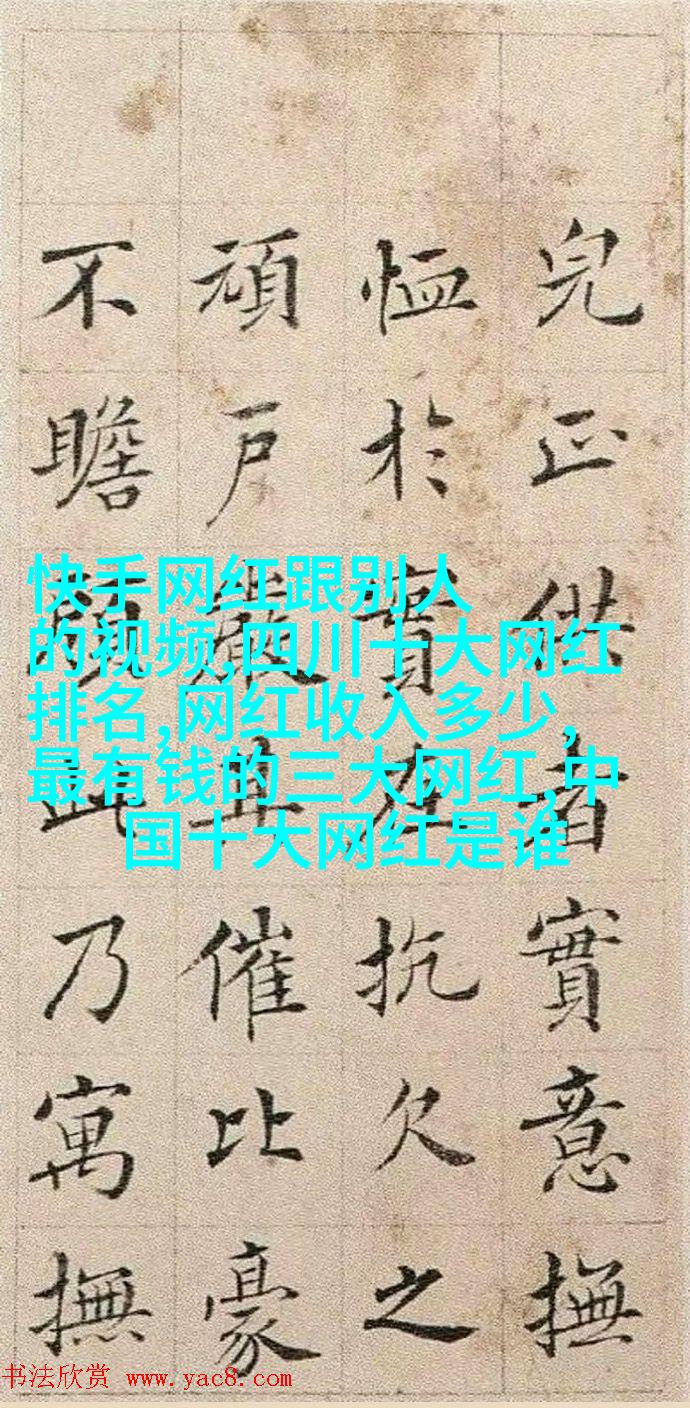 完正供者實意撫
恤於實在抗欠之
頑戶嚴且催比豪
不瞻顧此乃寓撫
快手网红跟别人
的视频,四川十大网红
排名,网红收入多少,
最有钱的三大网红,中
国十大网红是谁
书法欣赏 www.yac8.com